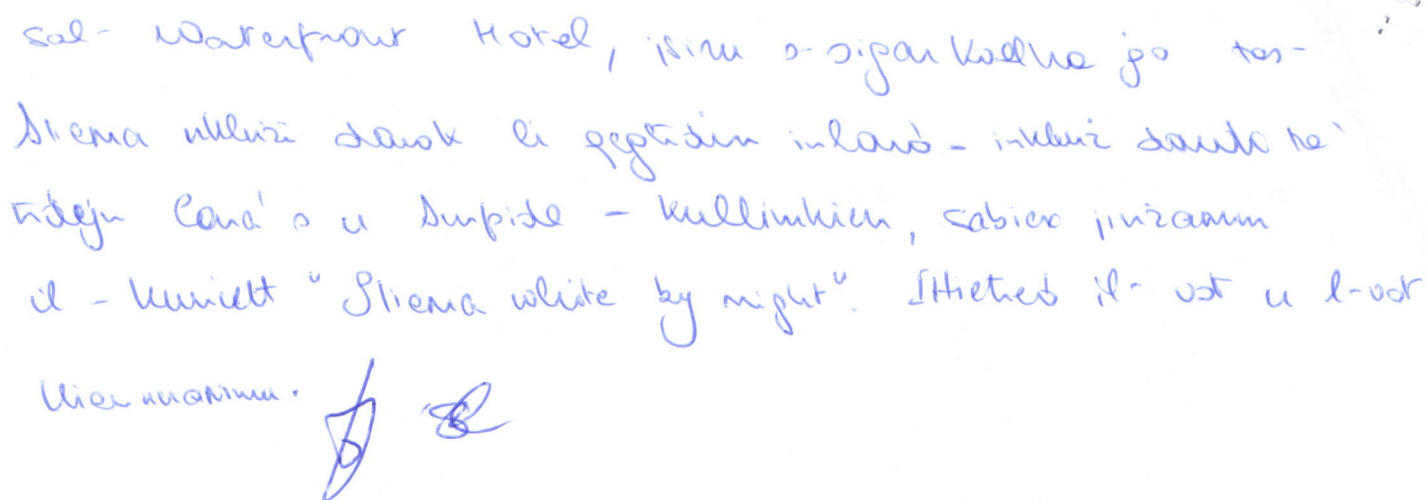 sal- Waterfront Hotel, jsiru s-sigar kollha ġo tas-
Sliema inkluż dawk li qegħdin - inkluż dawk ta'
ħdejn Cara's u Surfside - kullimkien, sabiex jinżamm
il-kunċett "Sliema white by night". Ittieħed il-vot u l-vot
kien unanimu.